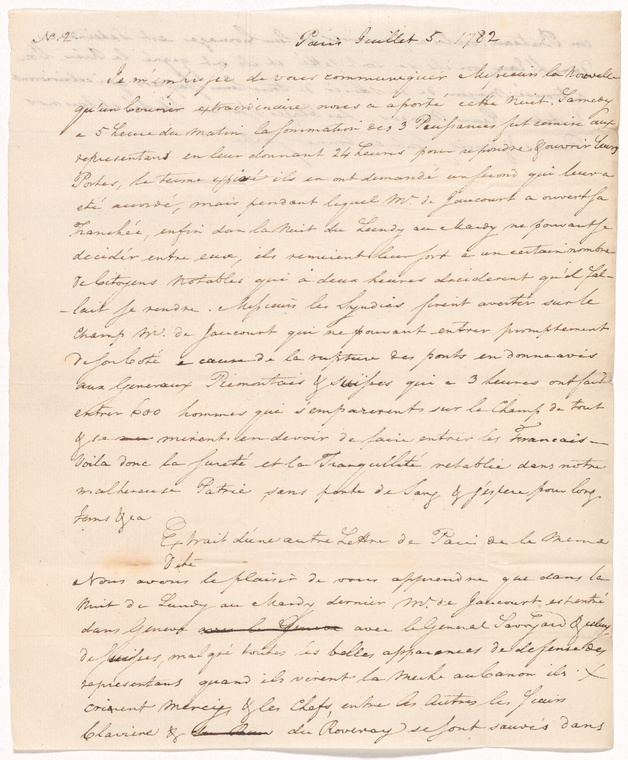 N. 2. Paris Juillet 5. 1782
Je m'empresse de vous communiquer Messieurs la Nouvelle
qu'un Courier extraordinaire nous a aporté cette nuit. Samedy
a 5 heure du matin la sommation des 3 Puissances fut remise aux
representans en leur donnant 24 heures pour repondre & ouvrir leurs
Portes, le terme expiré ils en ont demandé un second qui leur a
eté accordé, mais pendant lequel Mr. de Jaucourt a ouvert sa
Tranchée, enfin dan la Nuit du Lundy au Mardy ne pouvant se
decidér entre eux, ils remirent leur sort a un certain nombre
de Citoyens Notables qui à deux heures deciderent qu'il fal-
-lait se rendre. Messieurs les Syndics firent avertér sur le
Champ Mr. de Jaucourt qui ne pouvant entrer promptement
de son Coté a cause de la rupture des ponts en donne avis
aux Generaux Piémontais & Suisses qui a 3 heures ont fait
entrer 600 hommes qui s'emparerent sur le Champ de tout
& se mirent en devoir de faire entrer les Francais —
Voila donc la sureté et la Tranquillité retablie dans notre
malhereuse Patrie sans perte de Sang & j'espere pour long
tems &ca
Extrait d'une autre Lettre de Paris de la meme
Date
Nous avons le plaisir de vous apprendre que dans la
Nuit du Lundy au Mardy dernier Mr. de Jaucourt est entré
dans Geneve avec le General Savoyard & celuy
de Suisses, malgré toutes les belles apparences de defense des
representans quand ils virent la Meche au Canon ils
crierent Mercy & les Chefs, entre les Autres les Srs
Claviere & du Roveray se sont sauvés dans